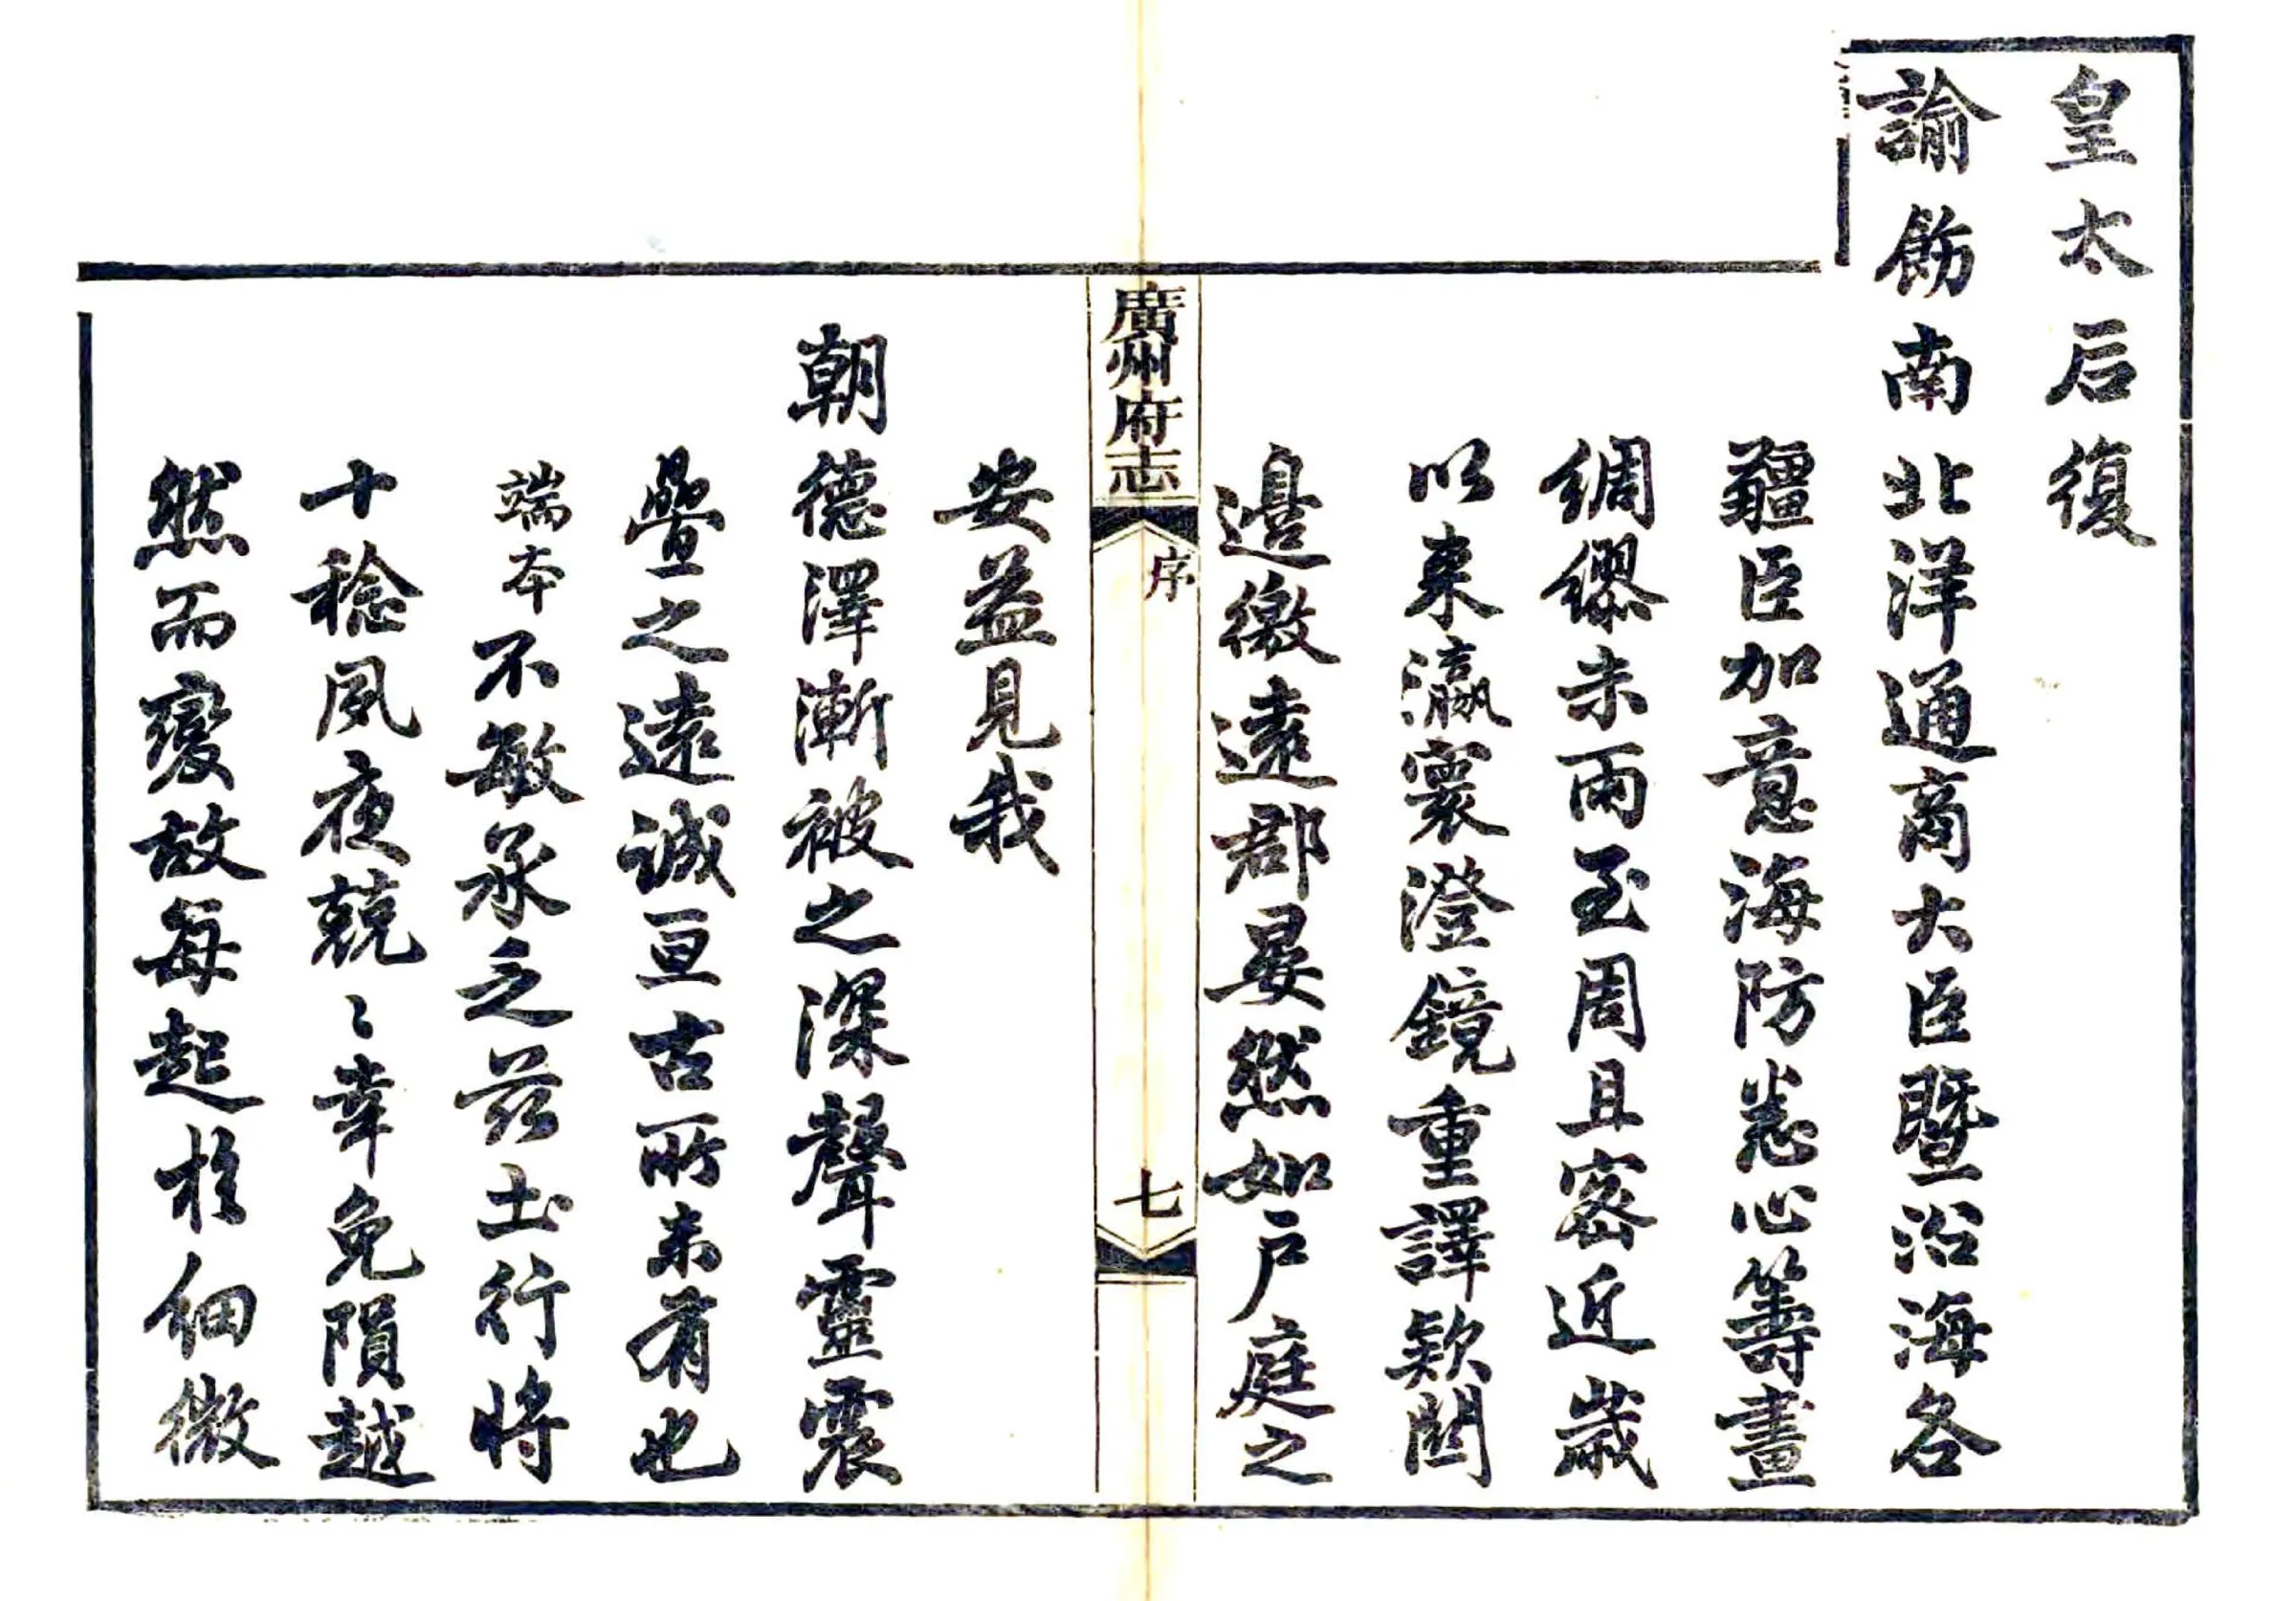 皇太后復
諭飭南北洋通商大臣暨沿海各
疆臣加意海防悉心籌畫
綢繆未雨至周且密近歲
以來瀛寰澄鏡重譯欵關
邉徼遠郡晏然如戶庭之
廣州府志
序
七
安益見我
朝德澤漸被之深聲靈震
疊之遠誠亘古所未有也
端本不敏承之茲土行將
十稔夙夜兢〻幸免隕越
然而變故每起於細微